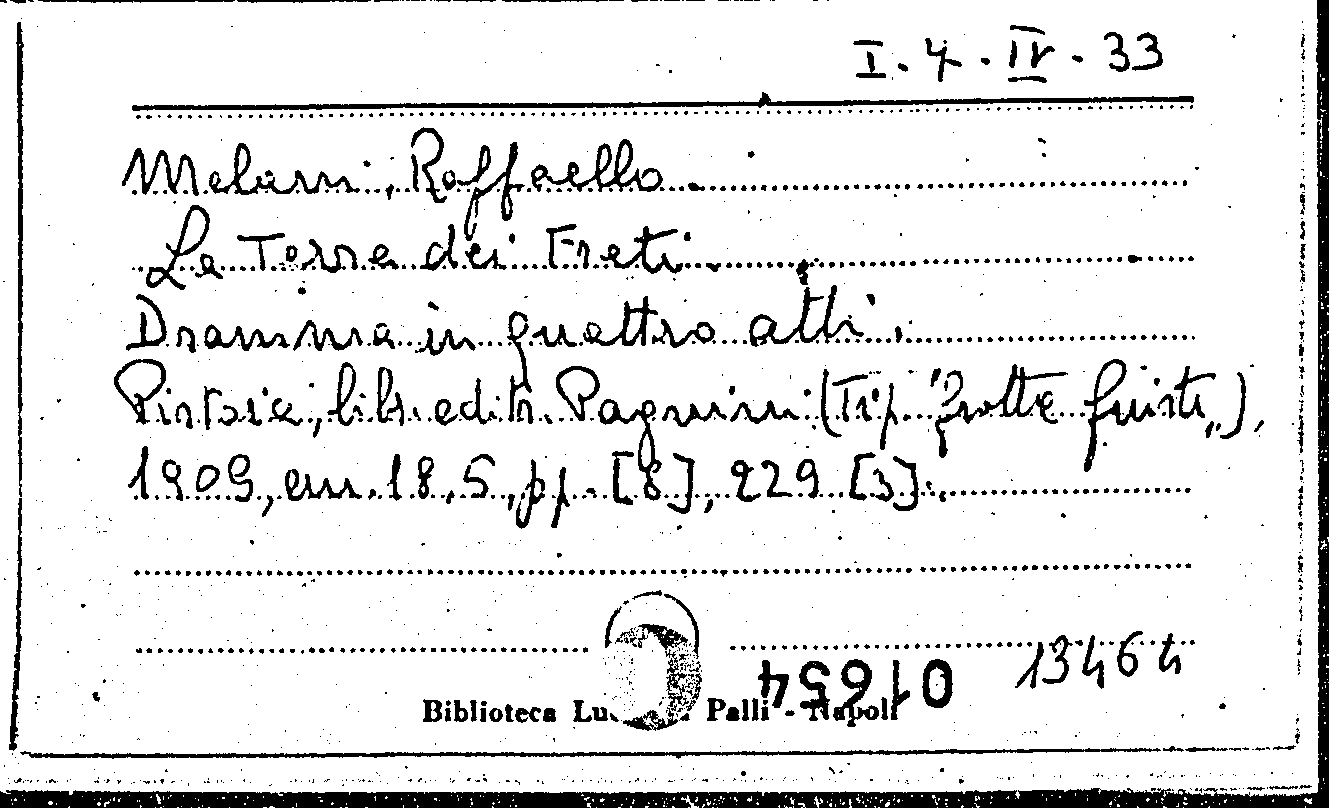 I. 4. IV. 33
Melani, Raffaello.
La Terra dei Freti.
Dramma in quattro atti.
Pistoia, libr. edit. Pagnini (Tip. "Grotte Giusti"),
1909, cm. 18,5, pp. [8], 229 [3].
01654
13464
Biblioteca Lu Palli - Napoli